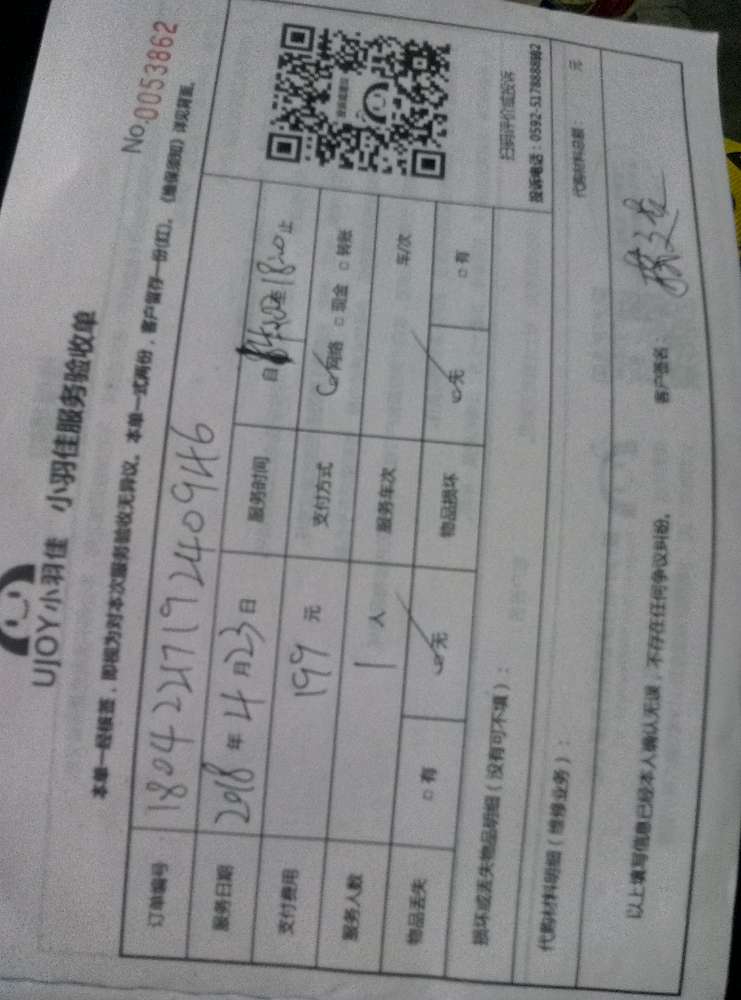 UJOY小羽佳 小羽佳服务验收单
No.0053862
本单一经核签，即视为对本次服务验收无异议。本单一式两份，客户留存一份(红)。《维保须知》详见背面。
订单编号 1804221719240946
服务日期 2018 年 4 月 23 日 服务时间 自 至 18:00 止
支付费用 199 元 支付方式 ☑网络 □现金 □转账
服务人数 1 人 服务车次 车/次
物品丢失 □有 ☑无 物品损坏 ☑无 □有
扫码评价或投诉
投诉电话：0592-5178888
损坏或丢失物品明细（没有可不填）：
代购材料明细（维修业务）： 代购材料总额： 元
以上填写信息已经本人确认无误，不存在任何争议纠纷。 客户签名：